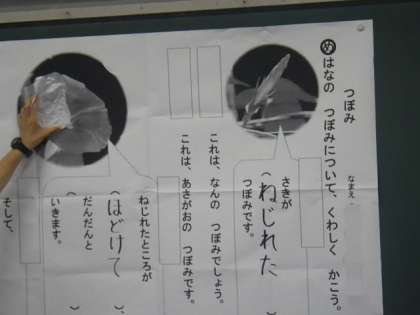 つぼみ
なまえ
め はなの つぼみについて、くわしく かこう。
さきが
(ねじれた
つぼみです。
これは、なんの つぼみでしょう。
これは、あさがおの つぼみです。
ねじれたところが
(ほどけて )、
だんだんと
( )
いきます。
そして、